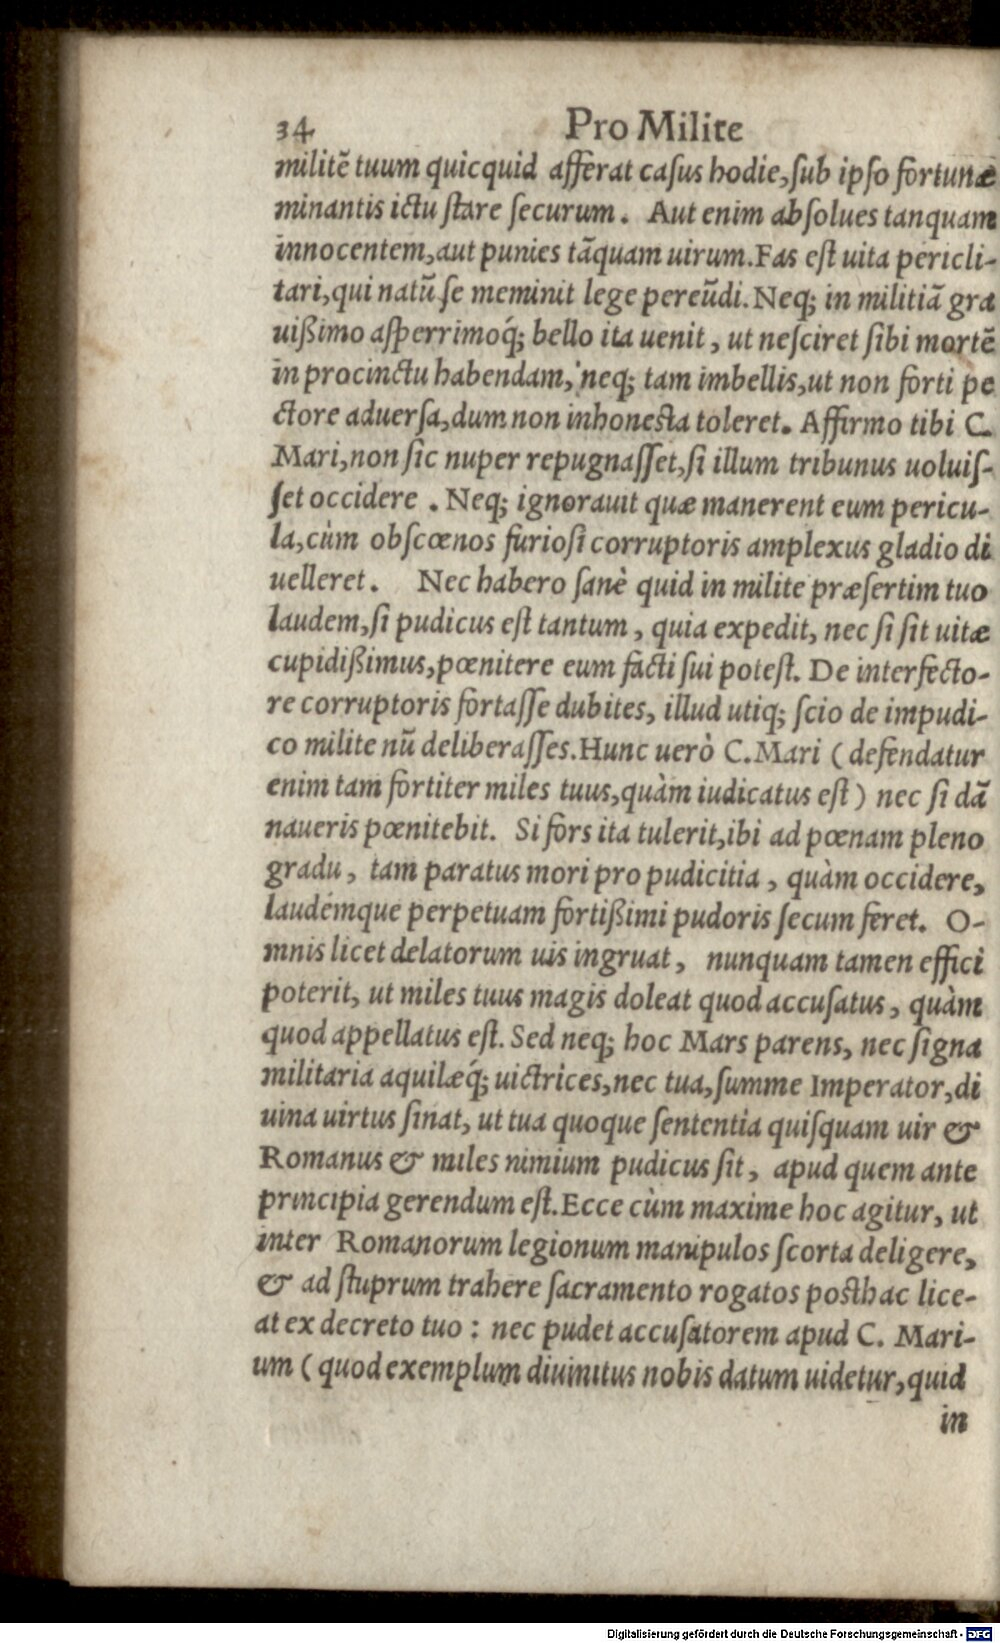 34 Pro Milite
militẽ tuum quicquid afferat casus hodie, sub ipso fortunæ
minantis ictu stare securum. Aut enim absolues tanquam
innocentem, aut punies tãquam uirum. Fas est uita pericli-
tari, qui natũ se meminit lege pereũdi. Neq; in militiã gra
uißimo asperrimoq́; bello ita uenit, ut nesciret sibi mortẽ
in procinctu habendam, neq; tam imbellis, ut non forti pe
ctore aduersa, dum non inhonesta toleret. Affirmo tibi C.
Mari, non sic nuper repugnasset, si illum tribunus uoluis-
set occidere. Neq; ignorauit quæ manerent eum pericu-
la, cùm obscœnos furiosi corruptoris amplexus gladio di
uelleret. Nec habero sanè quid in milite præsertim tuo
laudem, si pudicus est tantum, quia expedit, nec si sit uitæ
cupidißimus, pœnitere eum facti sui potest. De interfecto-
re corruptoris fortasse dubites, illud utiq; scio de impudi-
co milite nũ deliberasses. Hunc uerò C. Mari (defendatur
enim tam fortiter miles tuus, quàm iudicatus est) nec si dã
naueris pœnitebit. Si fors ita tulerit, ibi ad pœnam pleno
gradu, tam paratus mori pro pudicitia, quàm occidere,
laudémque perpetuam fortißimi pudoris secum feret. O-
mnis licet delatorum uis ingruat, nunquam tamen effici
poterit, ut miles tuus magis doleat quod accusatus, quàm
quod appellatus est. Sed neq; hoc Mars parens, nec signa
militaria aquilæq́; uictrices, nec tua, summe Imperator, di
uina uirtus sinat, ut tua quoque sententia quisquam uir &
Romanus & miles nimium pudicus sit, apud quem ante
principia gerendum est. Ecce cùm maxime hoc agitur, ut
inter Romanorum legionum manipulos scorta deligere,
& ad stuprum trahere sacramento rogatos posthac lice-
at ex decreto tuo: nec pudet accusatorem apud C. Mari-
um (quod exemplum diuinitus nobis datum uidetur, quid
in
Digitalisierung gefördert durch die Deutsche Forschungsgemeinschaft - DFG